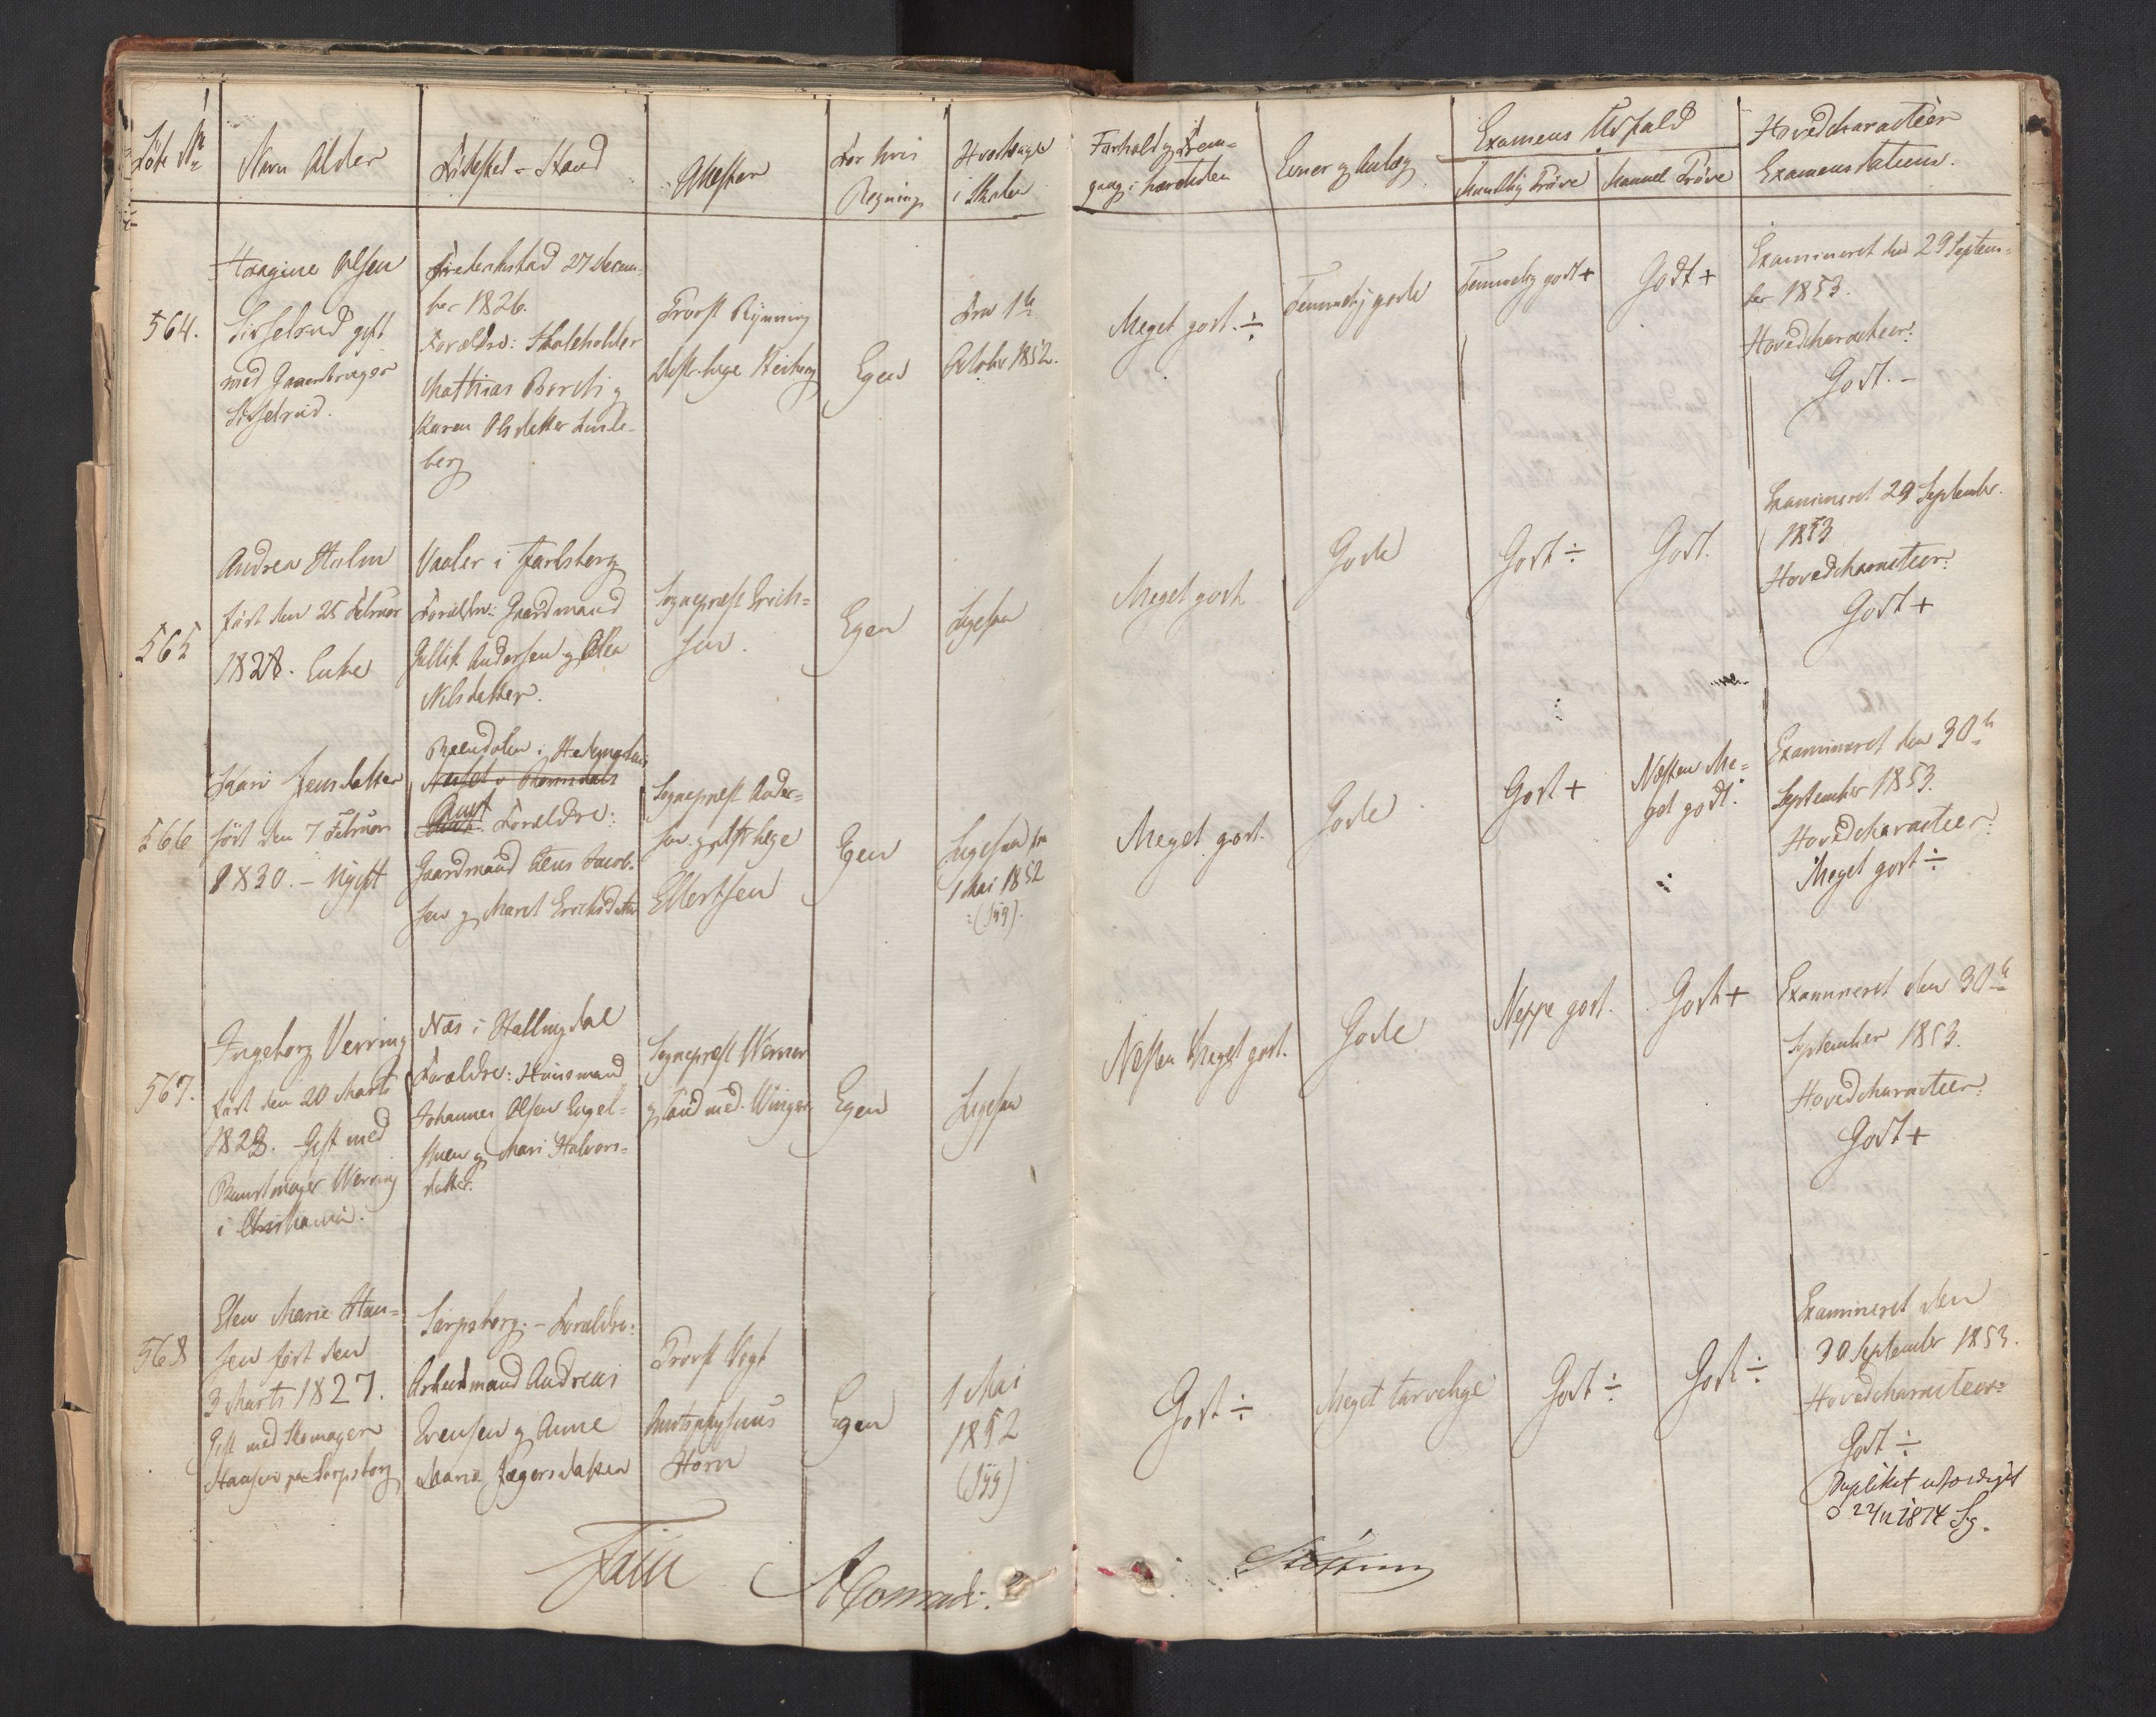 Løbe Nr
Navn Alder
Fødested - Stand
Attester
For hvis
Regning
i Skolen
Forhold og Frem=
gang i Læretiden
Evner og Anlæg
Examens Udfald
Mundtlig Prøve
Manuel Prøve
Hovedcharacteer
Examens Datum.
564.
Olsen
Sisselrud gift
med Gaardbruger
Sisselrud.
Frederikstad 27 Decem=
ber 1826.
Forældre: Skoleholder
Mathias Borch og
Karen Olsdatter Linde=
berg
Provst Rynning
Egen
Den 1te
October 1852.
Meget godt. ÷
Temmelig gode
Temmelig godt +
Godt +
Examineret den 29 Septem=
ber 1853.
Hovedcharacteer:
Godt. -
565
Andrea Holm
født den 25 Februar
1828. Enke
Vaaler i Jarlsberg
Forældre: Gaardmand
Gullik Andersen og Olea
Nilsdatter.
Sognepræst Erich=
sen.
Egen
Ligesaa
Meget godt
Gode
Godt ÷
Godt.
Examineret 29 September
1853
Hovedcharacteer:
Godt +
566
Kari Jensdatter
født den 7 Februar
1830. - Ugift
Reendalen i Hedemarkens
Amt
Forældre:
Gaardmand Jens Jacob=
sen og Maret Ericksdatter
Sognepræst Ander=
sen og Distr. læge
Ellertsen
Egen
Ligesaa fra
1 Mai 1852
(Syg).
Meget godt.
Gode
Godt +
Næsten Me=
get godt.
Examineret den 30te
September 1853.
Hovedcharacteer:
Meget godt ÷
567.
Ingeborg Verring
født den 20 Marts
1828. Gift med
Buntmager Werring
i Christiania.
Næs i Hallingdal
Forældre: Huusmand
Johannes Olsen Engel=
stuen og Mari Halvors=
datter.
Sognepræst Werner
og Cand. med. Winger
Egen
Ligesaa
Næsten Meget godt.
Gode
Neppe godt.
Godt +
Examineret den 30te
September 1853.
Hovedcharacteer:
Godt +
568
Elen Marie Han=
sen født den
3 Marts 1827.
Gift med Skomager
Hansen paa Sarpsborg
Sarpsborg. - Forældre:
Arbeidmand Andreas
Evensen og Anne
Marie Jægersdatter
Provst Vogt
Amtsphysicus
Horn
Egen
1 Mai
1852
(Syg)
Godt ÷
Meget tarvelige
Godt ÷
Godt ÷
Examineret den
30 September 1853.
Hovedcharacteer:
Godt ÷
Duplikat udfærdiget
1874
Faye
Conradi.
Steffens